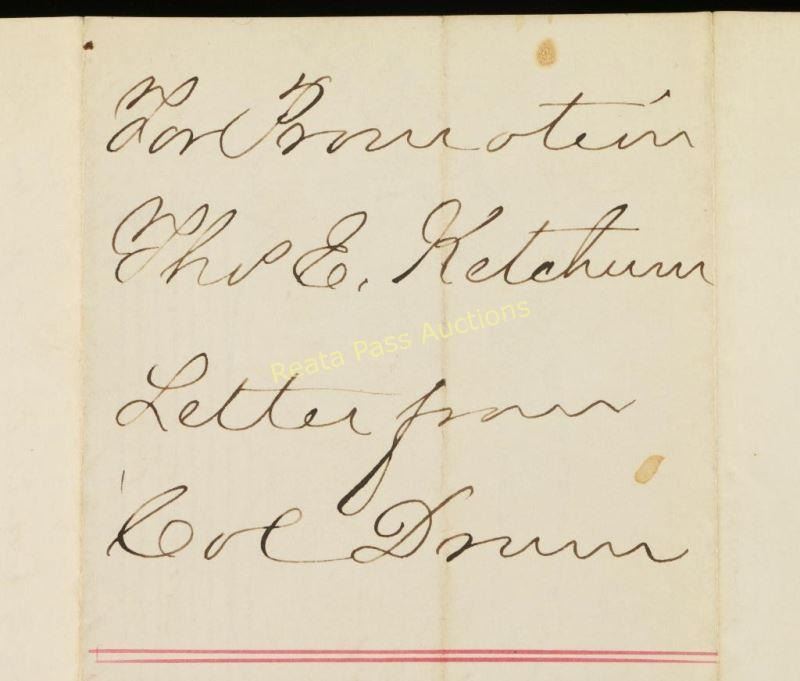 For Promotion
Thos E. Ketchum
Reata Pass Auctions
Letter from
Col Drum